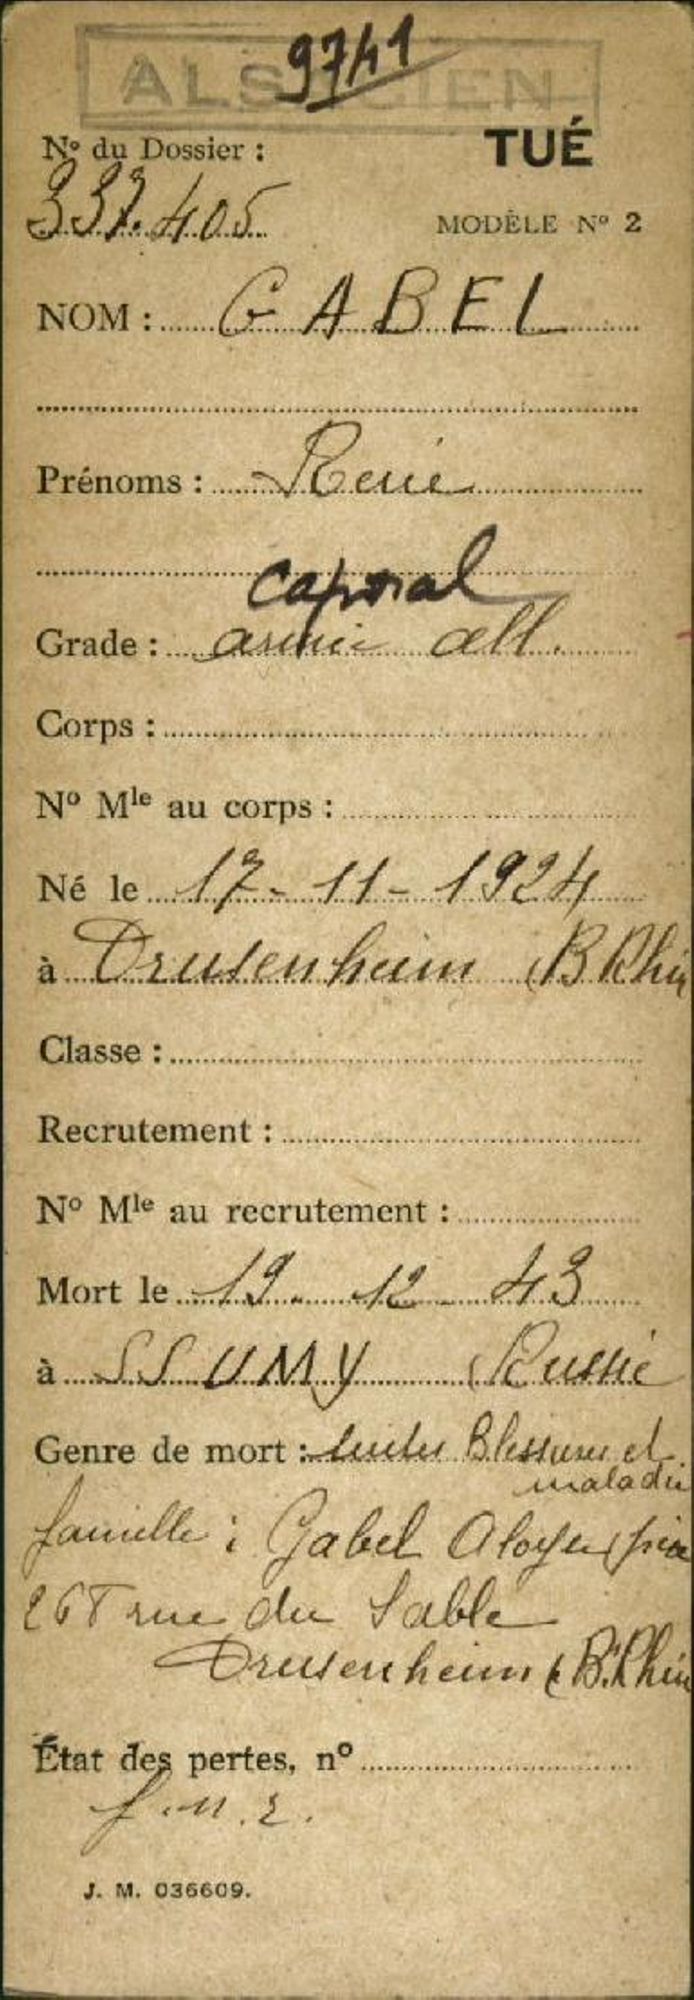 9741
ALSACIEN
N° du Dossier :
TUÉ
337.405
MODÈLE N° 2
NOM : GABEL
Prénoms : René
caporal
Grade : armée all.
Corps :
N° Mle au corps :
Né le 17-11-1924
à Drusenheim (B Rhin
Classe :
Recrutement :
N° Mle au recrutement :
Mort le 19. 12 43
à SSUMY (Russie
Genre de mort : suites Blessures et
maladie
famille : Gabel Aloyse (père
rue du Sable
Drusenheim (B.Rhin
État des pertes, n°
J. M. 036609.